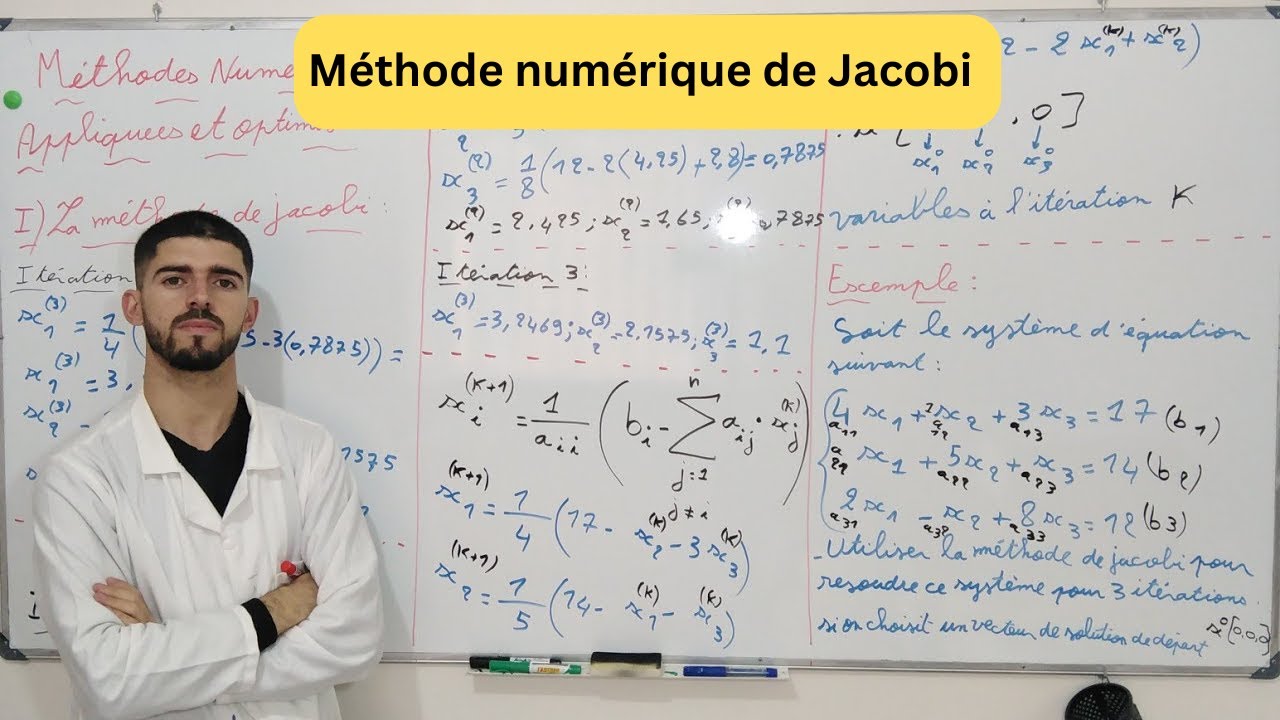 Méthode numérique de Jacobi
Méthodes Numé
Appliquées et optimis
I) La méthode de jacobi :
Itération
x₁⁽³⁾ = 1/4 ( 5 - 3(0,7875)) =
x₁⁽³⁾ = 3,
x₂⁽³⁾
1575
x₃⁽²⁾ = 1/8 (12 - 2(4,25) + 2,8) = 0,7875
x₁⁽²⁾ = 2,425 ; x₂⁽²⁾ = 1,65 ; ,7875
Itération 3 :
x₁⁽³⁾ = 3,2469 ; x₂⁽³⁾ = 2,1575 ; x₃⁽³⁾ = 1,1
xᵢ⁽ᴷ⁺¹⁾ = 1/aᵢᵢ (bᵢ - Σ aᵢⱼ · xⱼ⁽ᴷ⁾)
n
j=1
j≠i
x₁⁽ᴷ⁺¹⁾ = 1/4 (17 - x₂⁽ᴷ⁾ - 3x₃⁽ᴷ⁾)
x₂⁽ᴷ⁺¹⁾ = 1/5 (14 - x₁⁽ᴷ⁾ - x₃⁽ᴷ⁾)
2 - 2x₁⁽ᴷ⁾ + x₂⁽ᴷ⁾)
, 0]
x₁⁰ x₂⁰ x₃⁰
variables à l'itération K
Escemple :
Soit le système d'équation
suivant :
4x₁ + 1x₂ + 3x₃ = 17 (b1)
a11 a12 a13
x₁ + 5x₂ + x₃ = 14 (b2)
a22 a23
2x₁ - x₂ + 8x₃ = 12 (b3)
a31 a32 a33
- Utiliser la méthode de jacobi pour
resoudre ce système pour 3 itérations.
si on choisit un vecteur de solution de départ x⁰[0,0,0]